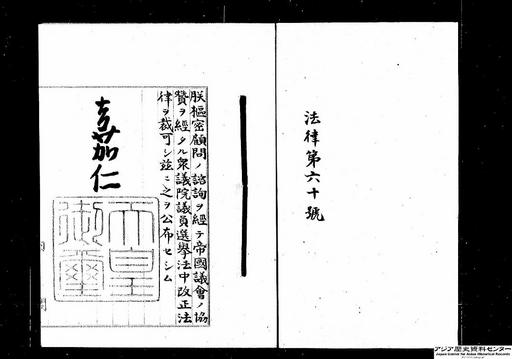 法律第六十號
朕樞密顧問ノ諮詢ヲ經テ帝國議會ノ協
贊ヲ經タル衆議院議員選擧法中改正法
律ヲ裁可シ茲ニ之ヲ公布セシム
嘉仁
天皇
御璽
アジア歴史資料センター
Japan Center for Asian Historical Records